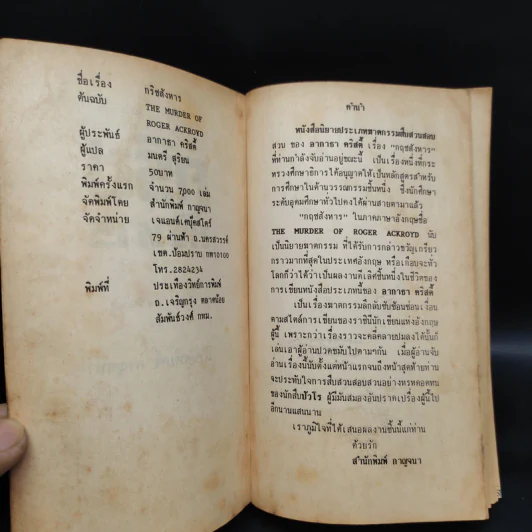 ชื่อเรื่อง กริชสังหาร
ต้นฉบับ THE MURDER OF
ROGER ACKROYD
ผู้ประพันธ์ อากาธา คริสตี้
ผู้แปล มนตรี สุริยน
ราคา 50บาท
พิมพ์ครั้งแรก จำนวน 7000 เล่ม
จัดพิมพ์โดย สำนักพิมพ์ กาญจนา
จัดจำหน่าย เจแอนด์เคบุ๊คสโตร์
79 ผ่านฟ้า ถ.นครสวรรค์
เขต.ป้อมปราบ กท10100
โทร.2824234
พิมพ์ที่ ประเทืองวิทย์การพิมพ์
ถ.เจริญกรุง ตลาดน้อย
สัมพันธ์วงศ์ กทม.
คำนำ
หนังสือนิยายประเภทฆาตกรรมสืบสวนสอบ
สวน ของ อากาธา คริสตี้ เรื่อง "กฤชสังหาร"
ที่ท่านกำลังจับอ่านอยู่ขณะนี้ เป็นเรื่องหนึ่งที่กระ
ทรวงศึกษาธิการได้อนุญาตให้เป็นหลักสูตรสำหรับ
การศึกษาในด้านวรรณกรรมชิ้นหนึ่ง ซึ่งนักศึกษา
ระดับอุดมศึกษาทั่วไปคงได้ผ่านสายตามาแล้ว
"กฤชสังหาร" ในภาคภาษาอังกฤษชื่อ
THE MURDER OF ROGER ACKROYD นับ
เป็นนิยายฆาตกรรม ที่ได้รับการกล่าวขวัญเกรียว
กราวมากที่สุดในประเทศอังกฤษ หรือเกือบจะทั่ว
โลกก็ว่าได้ว่าเป็นผลงานที่เลิศชิ้นหนึ่งในชีวิตของ
การเขียนหนังสือประเภทนี้ของ อากาธา คริสตี้
เป็นเรื่องฆาตกรรมลึกลับซับซ้อนซ่อนเงื่อน
ตามสไตล์การเขียนของราชินีนักเขียนแห่งอังกฤษ
ผู้นี้ เพราะกว่าเรื่องราวจะคลี่คลายปมลงได้นั้นก็
เล่นเอาผู้อ่านปวดขมับไปตามๆกัน เมื่อผู้อ่านจับ
อ่านเรื่องนี้นับตั้งแต่หน้าแรกจนถึงหน้าสุดท้ายท่าน
จะประทับใจการสืบสวนสอบสวนอย่างทรหดอดทน
ของนักสืบปัวโร ผู้มีมันสมองอันปราดเปรื่องผู้นี้ไป
อีกนานแสนนาน
เราภูมิใจที่ได้เสนอผลงานชิ้นนี้แก่ท่าน
ด้วยรัก
สำนักพิมพ์ กาญจนา